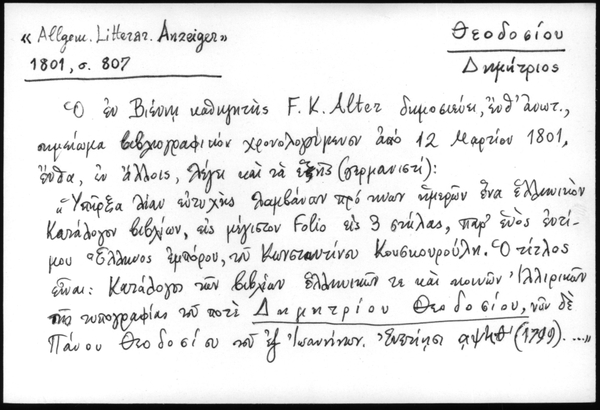 «Allgem. Litterar. Anzeiger»
1801, σ. 807
Θεοδοσίου
Δημήτριος
Ὁ ἐν Βιέννῃ καθηγητὴς F. K. Alter δημοσιεύει, ἐνθ' ἀνωτ.,
σημείωμα βιβλιογραφικὸν χρονολογούμενον ἀπὸ 12 Μαρτίου 1801,
ἔνθα, ἐν ἄλλοις, λέγει καὶ τὰ ἑξῆς (γερμανιστί):
«Ὑπῆρξα λίαν εὐτυχὴς λαμβάνων πρό τινων ἡμερῶν ἕνα ἑλληνικὸν
Κατάλογον βιβλίων, εἰς μέγιστον Folio εἰς 3 στήλας, παρ' ἑνὸς ἐντί-
μου Ἕλληνος ἐμπόρου, τοῦ Κωνσταντίνου Κουσκουρούλη. Ὁ τίτλος
εἶναι: Κατάλογος τῶν βιβλίων ἑλληνικῶν τε καὶ κοινῶν Ἰλλιρικῶν
τῆς τυπογραφίας τοῦ ποτὲ Δημητρίου Θεοδοσίου, νῦν δὲ
Πάνου Θεοδοσίου τοῦ ἐξ Ἰωαννίνων. Ἐνετίῃσι αψϟθ' (1799). ...»